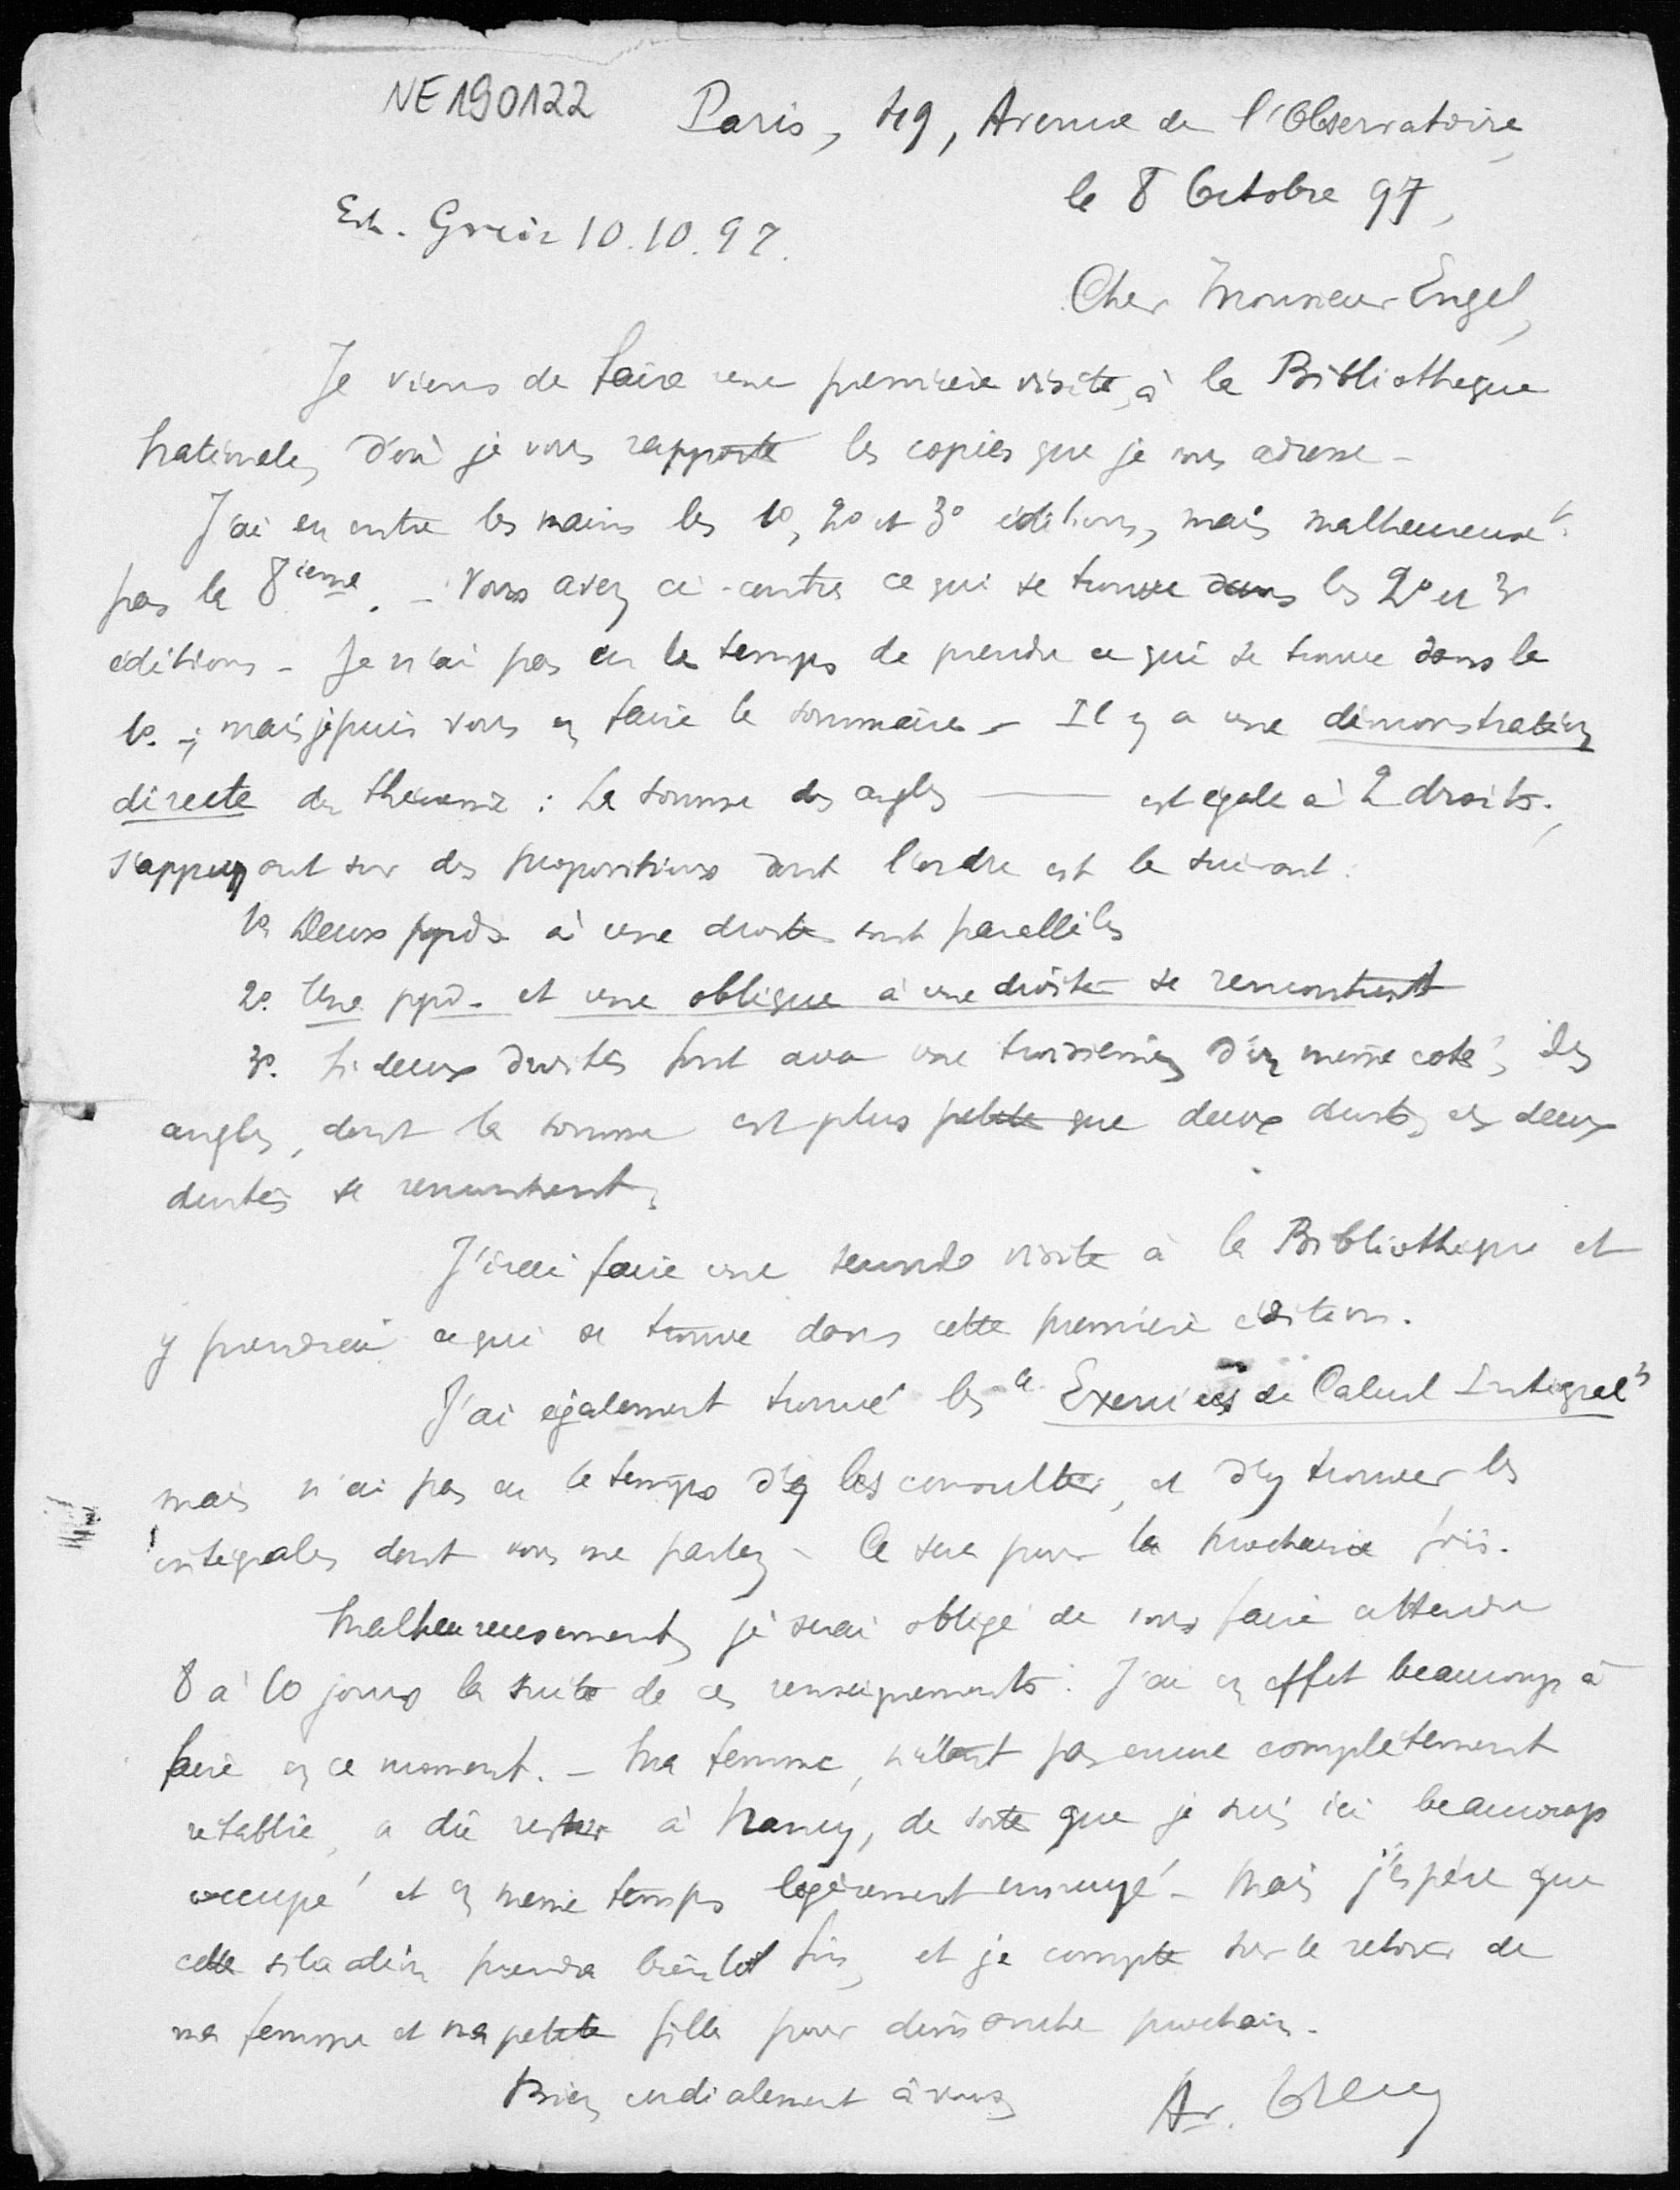 NE190122
Paris, 49, Avenue de l'Observatoire,
le 8 Octobre 97,
Erh. Greiz 10.10.97.
Cher Monsieur Engel,
Je viens de faire une première visite, à la Bibliotheque
Nationale, d'où je vous rapporte les copies que je vous adresse -
J'ai eu entre les mains les 1º, 2º et 3º éditions, mais malheureuset
pas la 8ieme. - Vous avez ci-contre ce qui se trouve dans les 2º et 3º
éditions - Je n'ai pas eu le temps de prendre ce qui se trouve dans la
1º. -; mais je puis vous en faire le sommaire - Il y a une démonstration
directe du théorème : La somme des angles —— est égale à 2 droits.,
s'appuyant sur des propositions dont l'ordre est le suivant.
1º Deux ppds à une droite sont parallèles
2º. Une ppd. et une oblique à une droite se rencontrent
3º. Si deux droites font avec une troisième, d'un même coté, des
angles, dont la somme est plus petite que deux droits, ces deux
droites se rencontrent.
J'irai faire une seconde visite à la Bibliothèque et
y prendrai ce qui se trouve dans cette première édition.
J'ai également trouvé les "Exercices de Calcul Intégral"
mais n'ai pas eu le temps d'y les consulter, et d'y trouver les
intégrales dont vous me parlez - Ce sera pour la prochaine fois.
Malheureusement, je serai obligé de vous faire attendre
8 à 10 jours la suite de ces renseignements. J'ai en effet beaucoup à
faire en ce moment. - Ma femme, n'étant pas encore complètement
rétablie, a dû rester à Nancy, de sorte que je suis ici beaucoup
occupé et en même temps légèrement ennuyé - Mais j'espère que
cette situation prendra bientôt fin, et je compte sur le retour de
ma femme et ma petite fille pour dimanche prochain.
Bien cordialement à vous,
Ar.